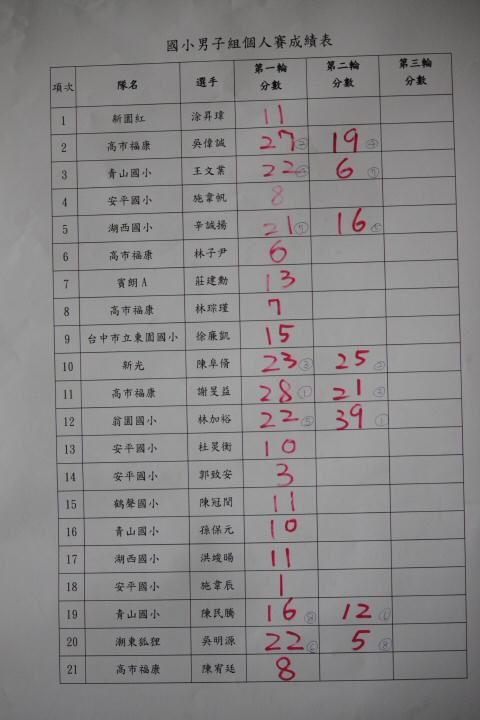 國小男子組個人賽成績表
項次 隊名 選手 第一輪分數 第二輪分數 第三輪分數
1 新園紅 涂昇瑋 11
2 高市福康 吳偉誠 27 19
3 青山國小 王文葉 22 6 ⑦
4 安平國小 施韋帆 8
5 湖西國小 辛誠揚 21 ⑦ 16
6 高市福康 林子尹 6
7 賓朗A 莊建勳 13
8 高市福康 林琮瑾 7
9 台中市立東園國小 徐廉凱 15
10 新光 陳阜脩 23 ③ 25 ②
11 高市福康 謝旻益 28 ① 21 ③
12 翁園國小 林加裕 22 ⑤ 39 ①
13 安平國小 杜昊衡 10
14 安平國小 郭致安 3
15 鶴聲國小 陳冠閔 11
16 青山國小 孫保元 10
17 湖西國小 洪埈暘 11
18 安平國小 施韋辰 1
19 青山國小 陳民騰 16 ⑧ 12
20 潮東狐狸 吳明源 22 5 ⑧
21 高市福康 陳宥廷 8